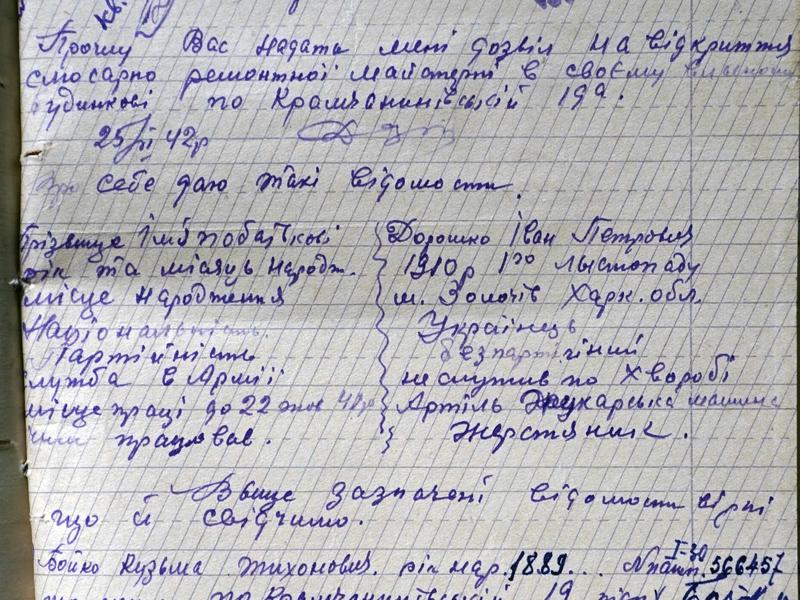 Кв. 19
Прошу Вас надати мені дозвіл на відкриття
слюсарно ремонтної майстерні в своєму
будинкові по Крамчанинівській 19а.
25/III 42р
Про себе даю такі відомости.
Прізвище Імя побатькові Дорошко Іван Петрович
рік та місяць народж. 1910р 1го лыстопаду
місце народження м. Золочів Харк. обл.
Національність. Українець
Партійність безпартійний
служба в Армії не служив по хворобі
місце праці до 22 Артіль Друкарська машина
чим працював. Жерстяник.
Ввище зазначені відомости вірні
що й свідчимо.
Бойко Кузьма Тихонович. рік нар. 1889... №пашп. I-30 566457